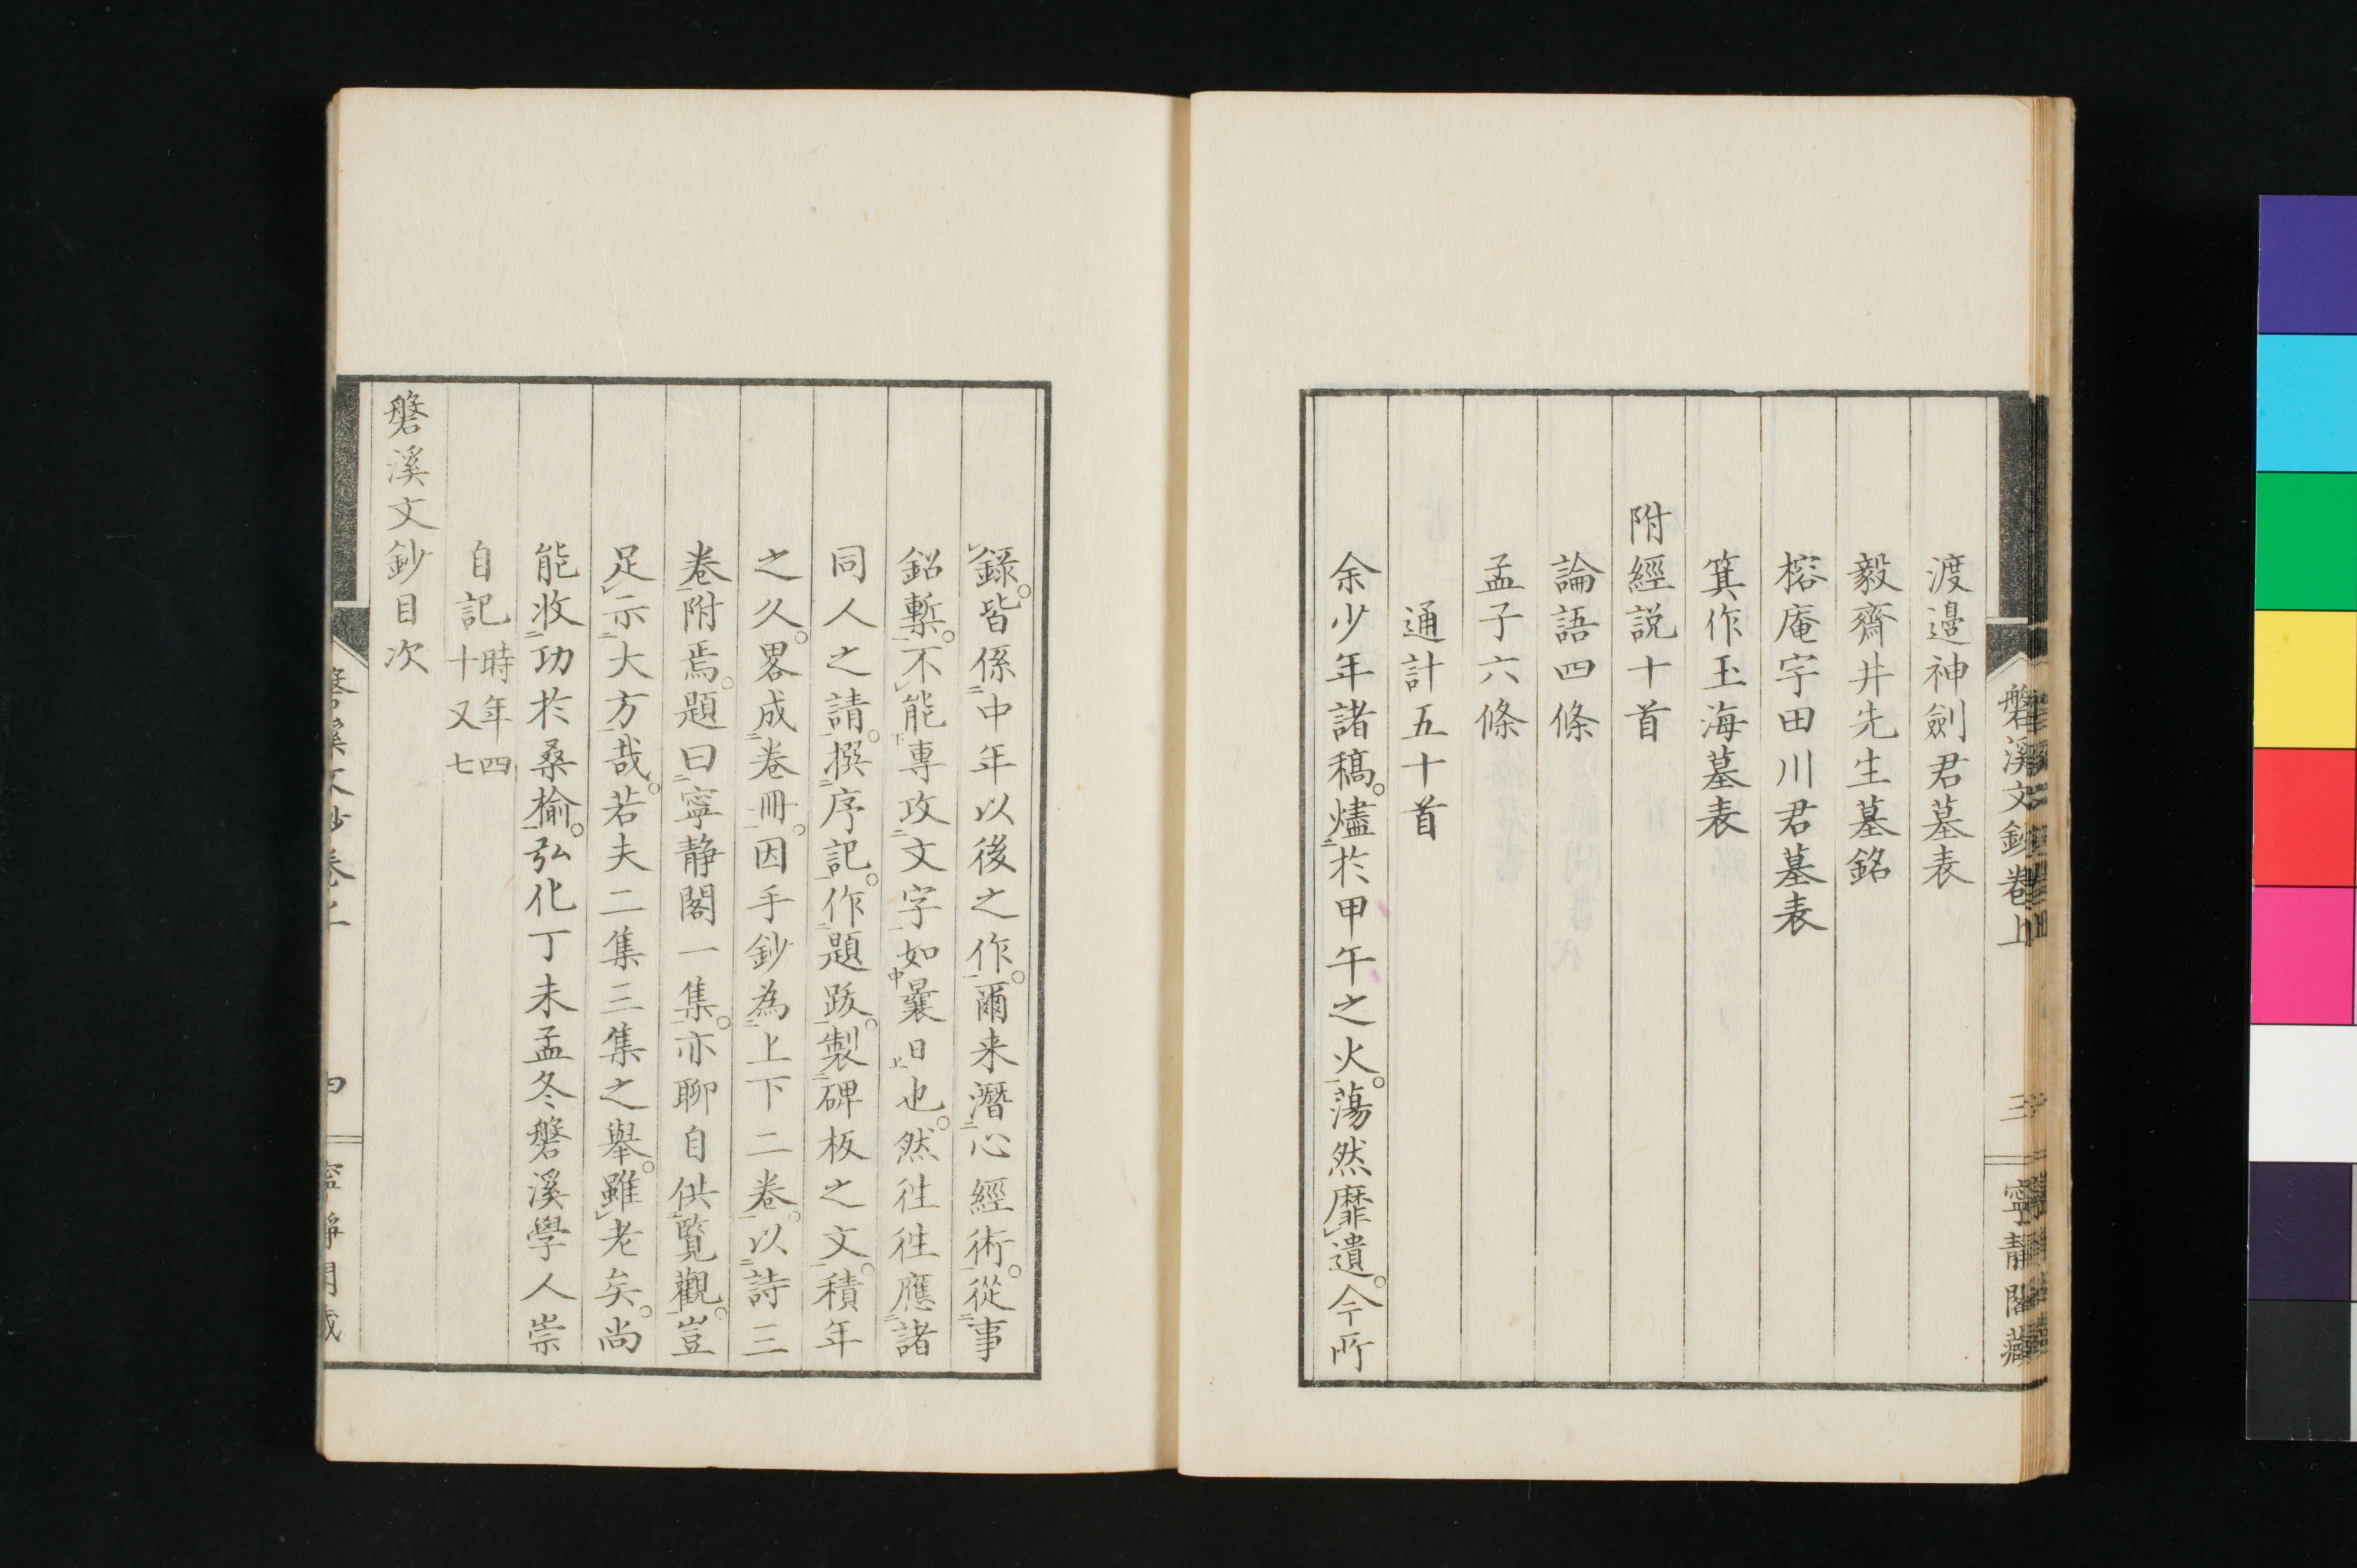 渡邉神劍君墓表
毅齋井先生墓銘
榕庵宇田川君墓表
箕作玉海墓表
附經説十首
論語四條
孟子六條
通計五十首
余少年諸稿。燼二於甲午之火一。蕩然靡レ遺。今所
レ録。皆係二中年以後之作一。爾来潛二心經術一。從二事
鉛槧一。不レ能下專二攻文字一如中曩日上也。然徃徃應二諸
同人之請一。撰二序記一。作二題跋一。製二碑板之文一。積年
之久。畧成二卷冊一。因手鈔為二上下二卷一。以二詩三
卷一附焉。題曰二寧静閣一集一。亦聊自供二覧觀一。豈
足レ示二大方一哉。若夫二集三集之舉。雖レ老矣。尚
能收二功於桑榆一。弘化丁未孟冬磐溪學人崇
自記 時年四十又七
磐溪文鈔目次
磐溪文鈔卷上
三
寧静閣藏